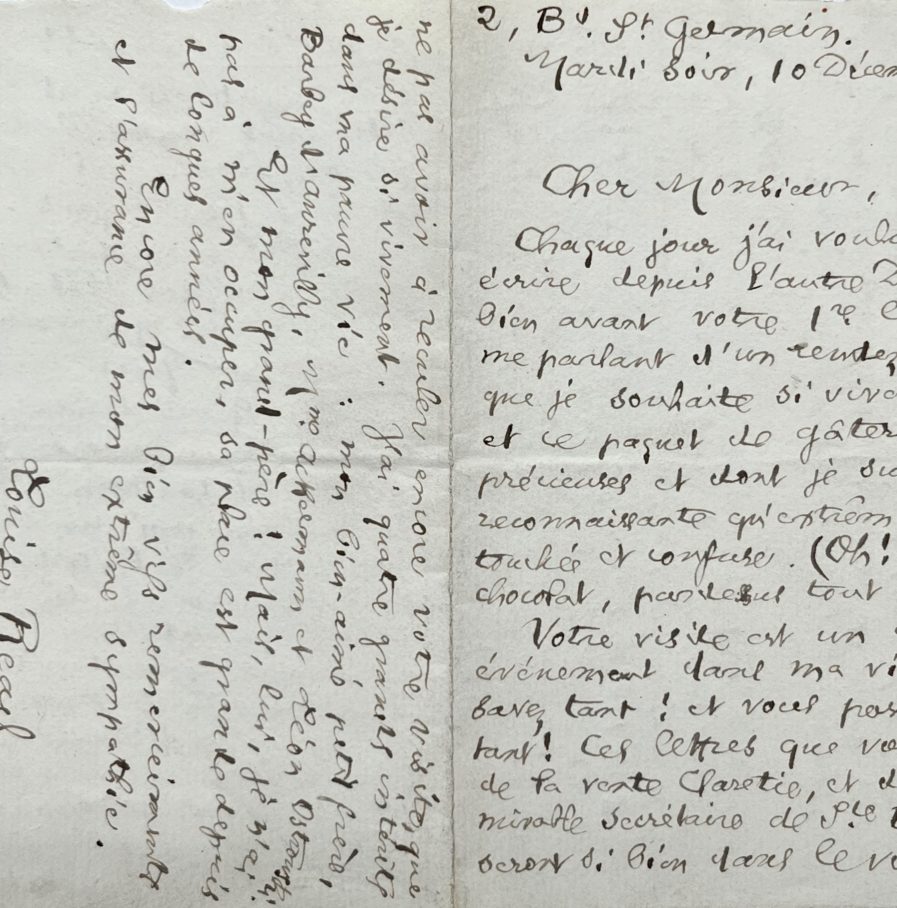 2, Bd. St Germain.
Mardi soir, 10 Décem
Cher Monsieur,
Chaque jour j'ai voul
écrire depuis l'autre
bien avant votre 1re
me parlant d'un rendez
que je souhaite si vive
et ce paquet de gâter
précieuses et dont je su
reconnaissante qu'extrêm
touchée et confuse. (Oh!
chocolat, pardessus tout
Votre visite est un
événement dans ma vi
savez tant! et vous pos
tant! Ces lettres que vou
de la vente Claretie, et d
mirable secrétaire de Ste
seront si bien dans le
ne pas avoir à reculer encore votre visite, que
je désire si vivement. J'ai quatre grands intérêts
dans ma pauvre vie : mon bien-aimé petit frère,
Barbey d'Aurevilly, Mme Ackermann et Léon Ostrowski.
Et mon grand-père! Mais, lui, je n'ai
pas à m'en occuper, sa place est grande depuis
de longues années.
Encore mes bien vifs remerciements
et l'assurance de mon extrême sympathie.
Louise Read